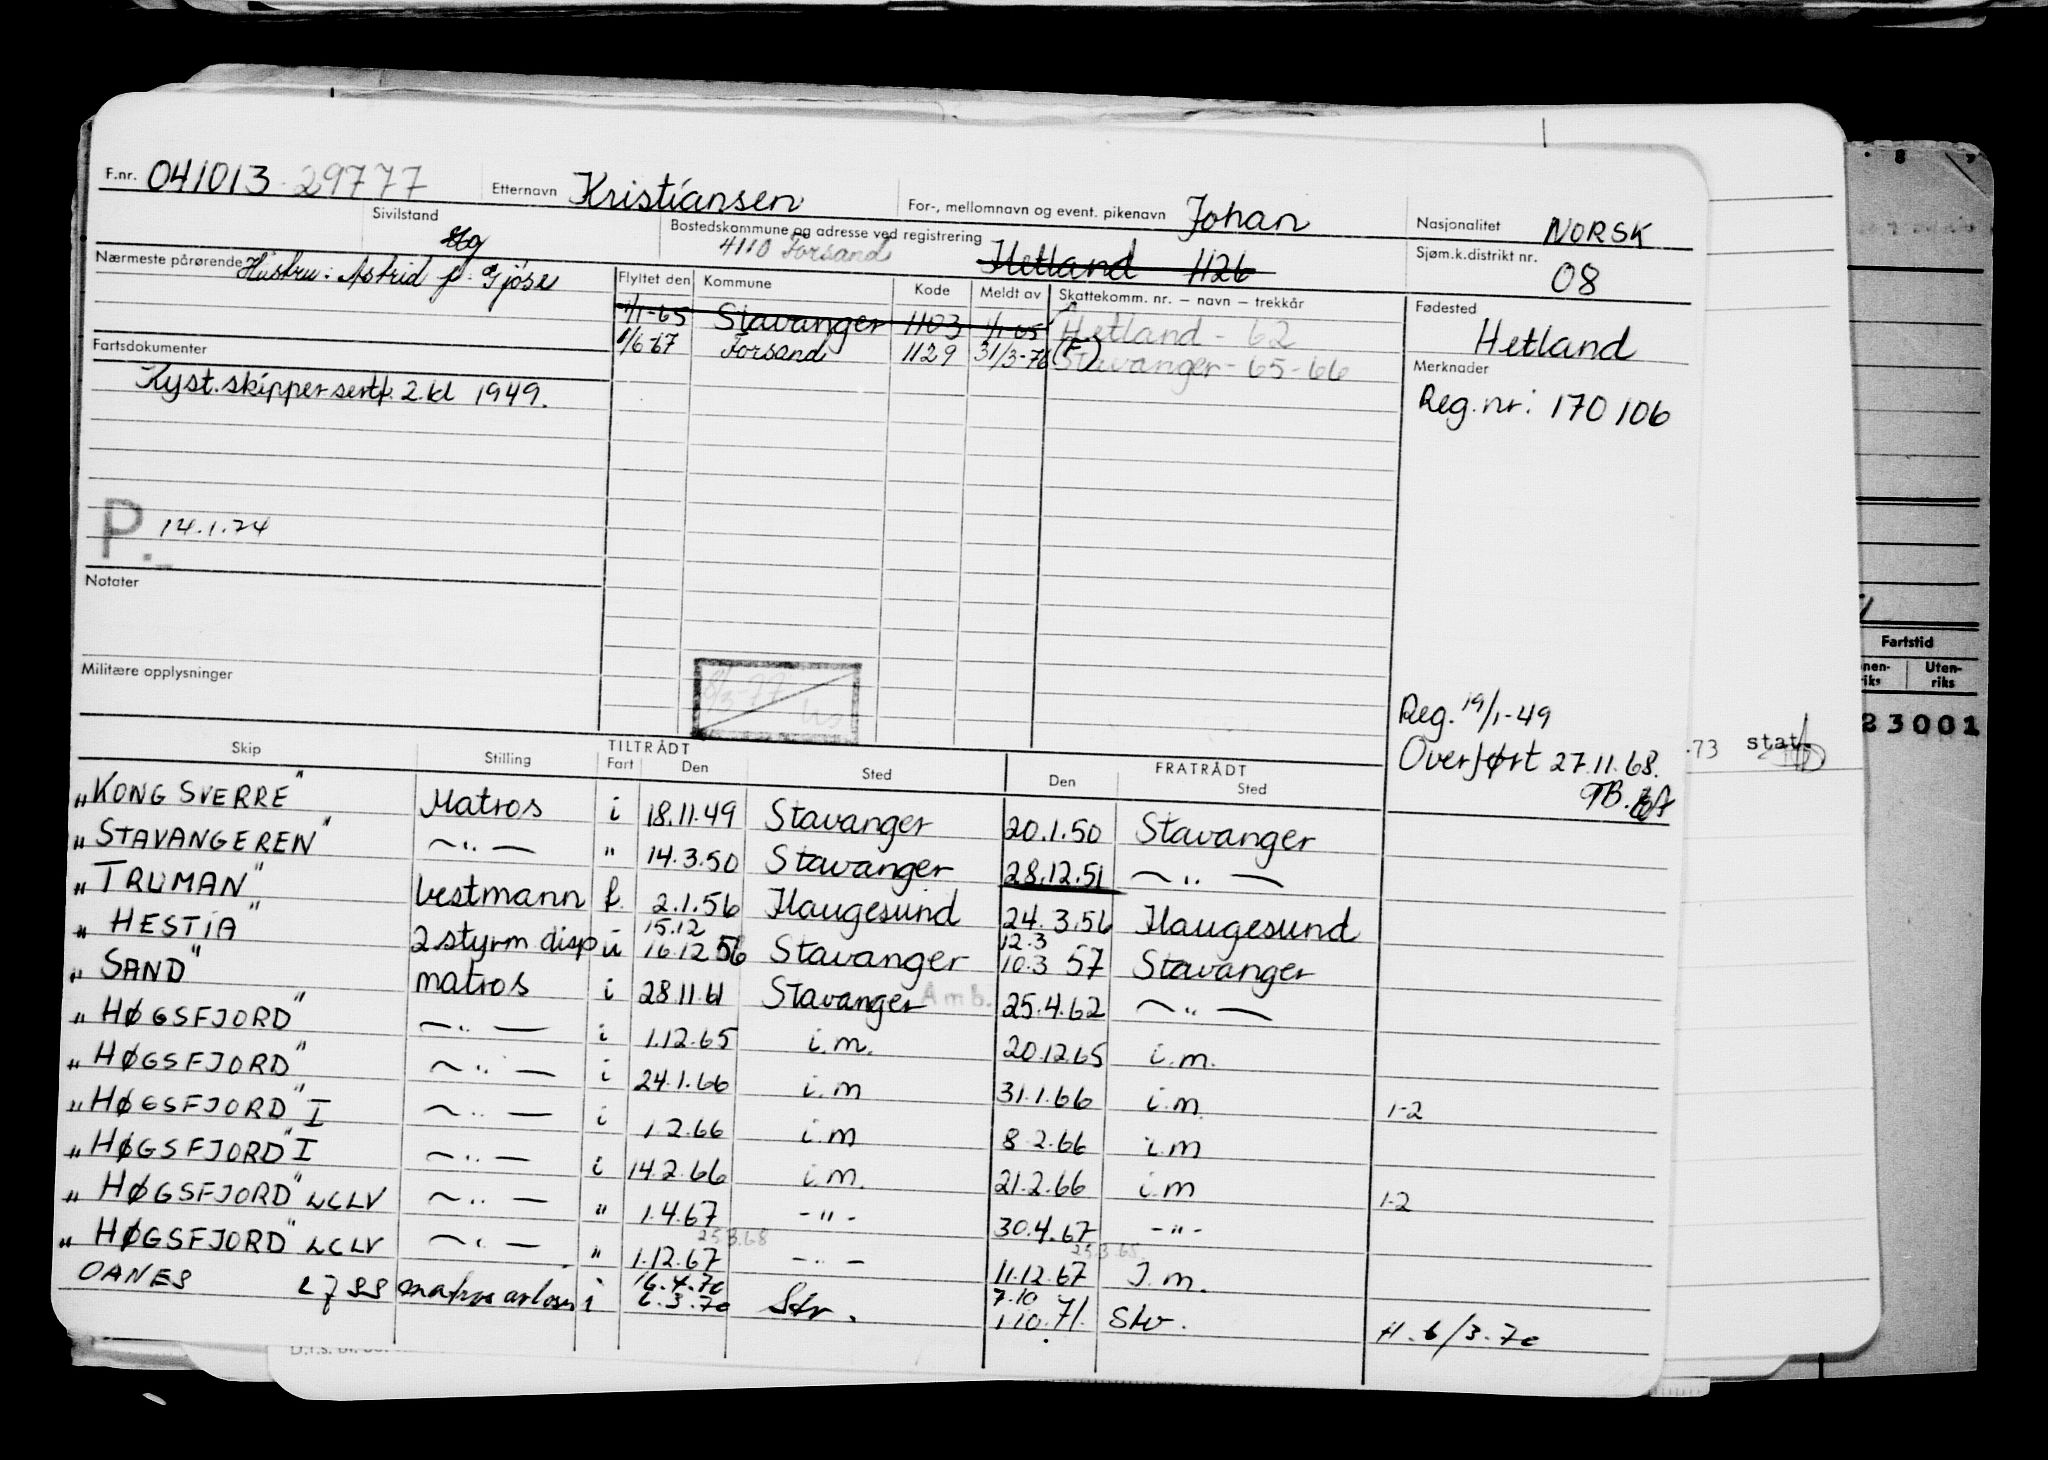 F.nr. 041013 29777 Etternavn Kristiansen For-, mellomnavn og event. pikenavn Johan Nasjonalitet NORSK
Sivilstand Bostedskommune og adresse ved registrering 4110 Forsand Hetland 1126 Sjøm.k.distrikt nr. 08
Nærmeste pårørende Hustru: Astrid f. Gjöse
Flyttet den Kommune Kode Meldt av Skattekomm. nr. — navn — trekkår Fødested
1/1-65 Stavanger 1103 1/1-65 Hetland - 62 Hetland
1/6-67 Forsand 1129 31/3-76 (F) Stavanger - 65-66
Fartsdokumenter Merknader
Kyst.skippersertf. 2.kl 1949. Reg.nr: 170106
P. 14.1.74
Notater
Militære opplysninger
8/3-77
Reg. 19/1-49
Overført 27.11.68.
TB.
Skip Stilling TILTRÅDT Fart Den Sted FRATRÅDT Den Sted
"KONG SVERRE" Matros i 18.11.49 Stavanger 20.1.50 Stavanger
"STAVANGEREN" — " — " 14.3.50 Stavanger 28.12.51 — " —
"TRUMAN" bestmann f. 2.1.56 Haugesund 24.3.56 Haugesund
15.12 12.3
"HESTIA" 2 styrm disp u 16.12 56 Stavanger 10.3 57 Stavanger
"SAND" matros i 28.11 61 Stavanger Amb. 25.4.62 — " —
"HØGSFJORD" — " — i 1.12.65 i.m. 20.12.65 i.m.
"HØGSFJORD" — " — i 24.1.66 i.m 31.1.66 i.m. 1-2
"HØGSFJORD" I — " — i 1.2.66 i.m 8.2.66 i.m
"HØGSFJORD" I — " — i 14.2.66 i.m. 21.2.66 i.m 1-2
"HØGSFJORD" LCLV — " — " 1.4.67 - " - 30.4.67 - " -
25.3.68 25.3.68
"HØGSFJORD" LCLV — " — " 1.12.67 - " - 11.12.67 I.m.
16.4.70 7.10
OANES matros avløser i 6.3.70 Stv. 1.10.71. Stv. H. 6/3-70
Fartstid
Uten-
riks
23001
73 stat.